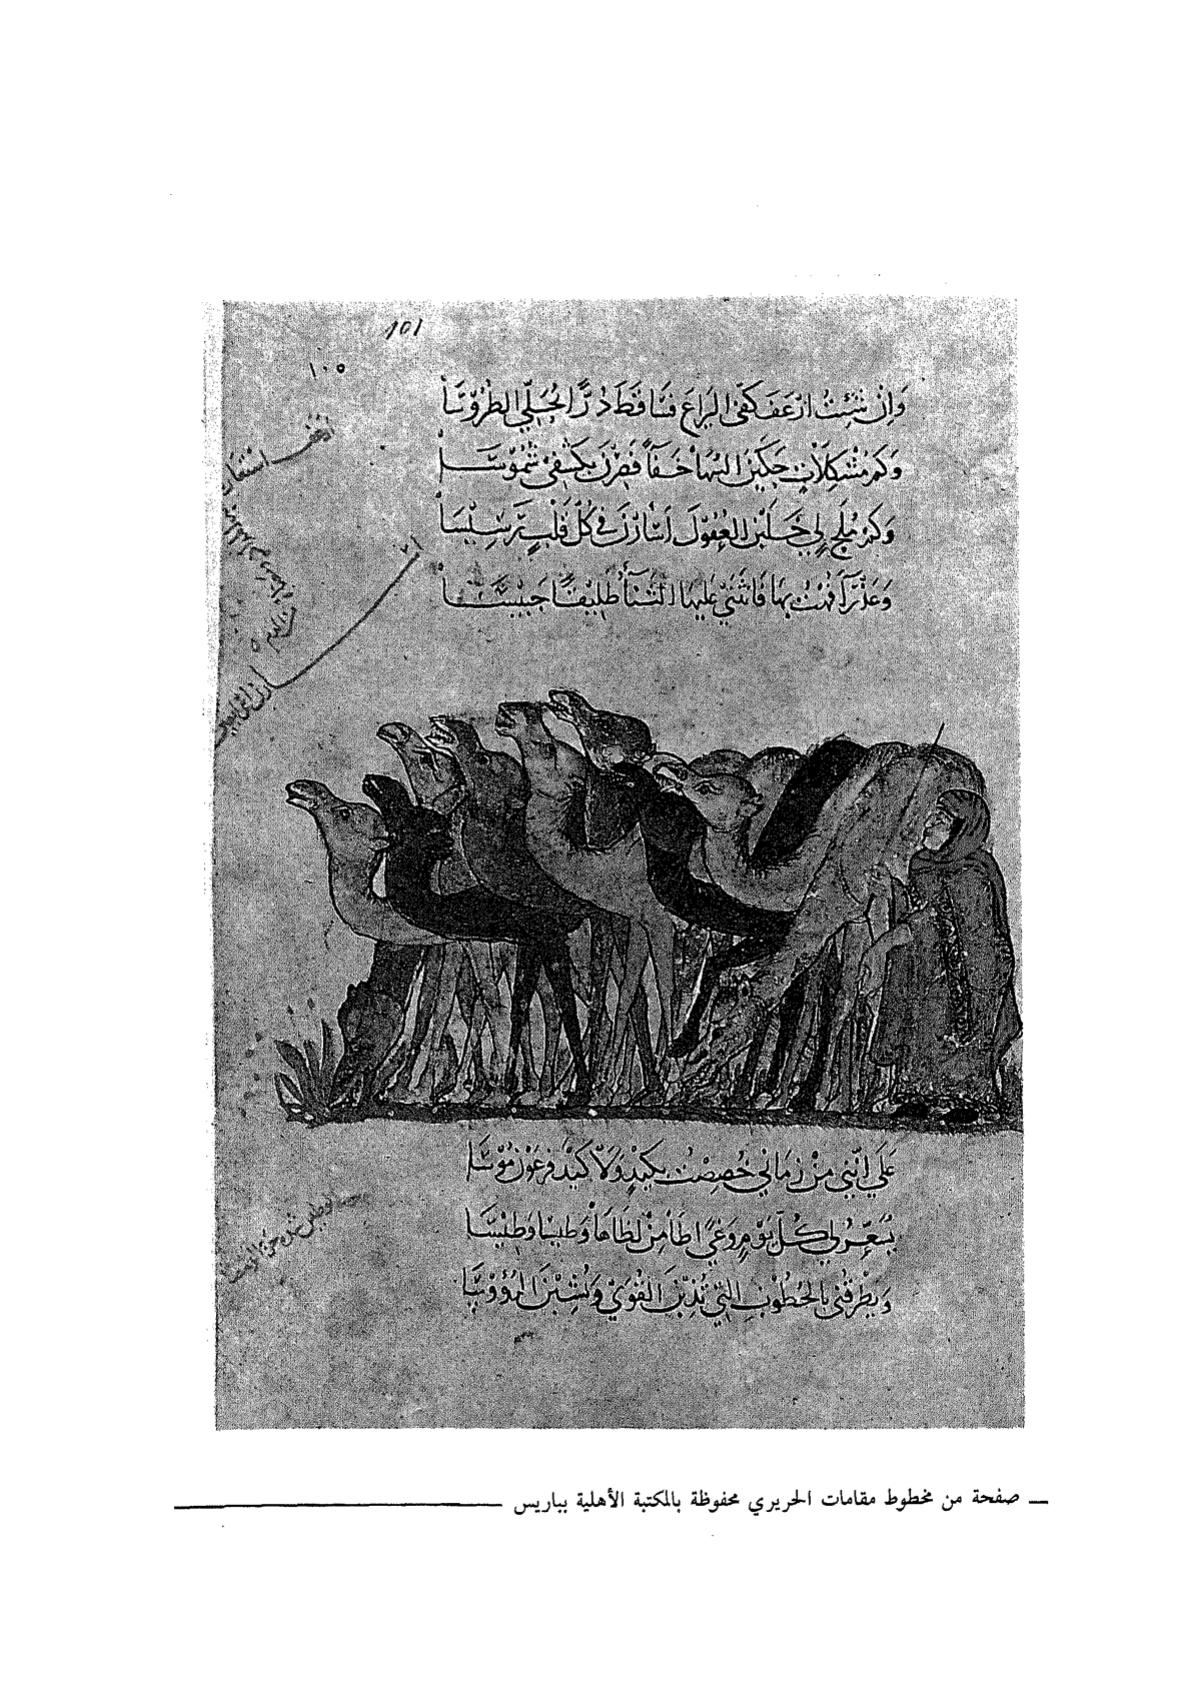 101
١٠٥
وَاِنْ شِئْتُ ارْعَفَ كَفّى اليَراعَ فَسَاقَطَ دُرًّا يُحَلّي الطُرُوْسَا
وَكَمْ مُشْكِلَاتٍ حَكَيْنَ السُّهَا خَفَآءً فَصِرْنَ بِكَشْفِيْ شُمُوْسَا
وَكَمْ مُلَحٍ لِي خَلَبْنَ العُقُوْلَ اَسْأَرْنَ فِي كُلّ قَلْبٍ رَسِيْسَا
وَعَذْرَآءَ فُهْتُ بِهَا فَانْثَنَى عَلَيْهَا الثَنَآءُ طَلِيْقًا حَبِيْسَا
عَلَى اَنّنِي مِنْ زَمَانِي خُصِصْتُ بِكَيْدٍ وَلَا كَيْدَ فِرْعَوْنَ مُوْسَى
يُسَعِّرُ لِي كُلَّ يَوْمٍ وَغًى اَطَأ مِنْ لَظَاهَا وَطِيْسًا وَطِيْسَا
وَيَطْرُقُنِي بِالخُطُوْبِ الَّتِي يُذِبْنَ القُوَى وَيُشِبْنَ الرُؤُوْسَا
— صفحة من مخطوط مقامات الحريري محفوظة بالمكتبة الأهلية بباريس